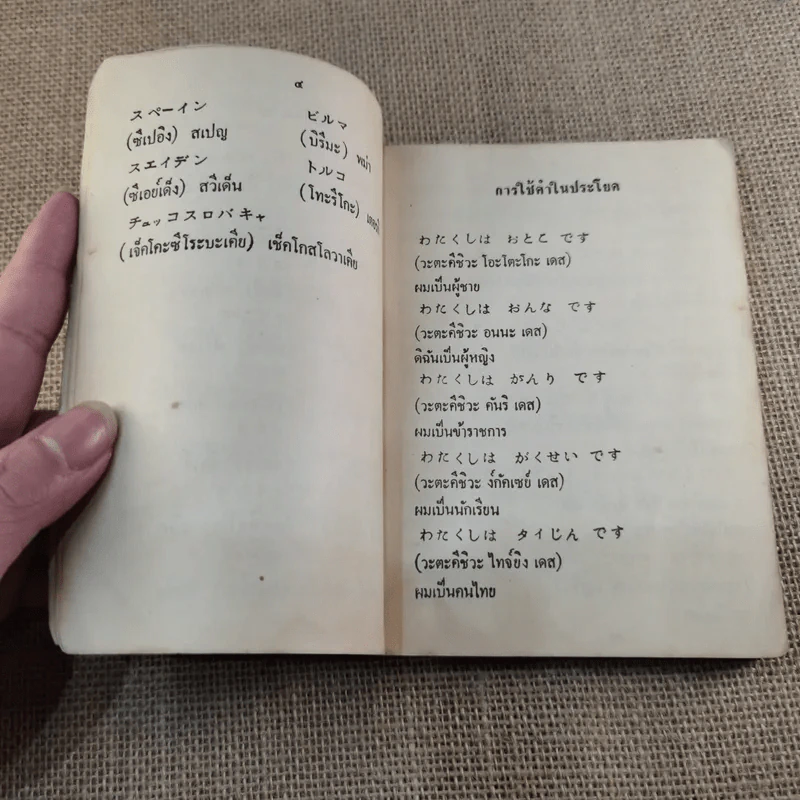 ๔
スペーイン
(ซึเปอิง) สเปญ
スエイデン
(ซึเอย์เด็ง) สวีเดน
チェッコスロバキャ
(เจ็คโคะซึโระบะเคีย) เช็คโกสโลวาเคีย
ビルマ
(บิรึมะ) พม่า
トルコ
(โทะรึโกะ)
การใช้คำในประโยค
わたくしは おとこ です
(วะตะคึชิวะ โอะโตะโกะ เดส)
ผมเป็นผู้ชาย
わたくしは おんな です
(วะตะคึชิวะ อนนะ เดส)
ดิฉันเป็นผู้หญิง
わたくしは がんり です
(วะตะคึชิวะ คันริ เดส)
ผมเป็นข้าราชการ
わたくしは がくせい です
(วะตะคึชิวะ ง์กัคเซย์ เดส)
ผมเป็นนักเรียน
わたくしは タイじん です
(วะตะคึชิวะ ไทจ์ยิง เดส)
ผมเป็นคนไทย